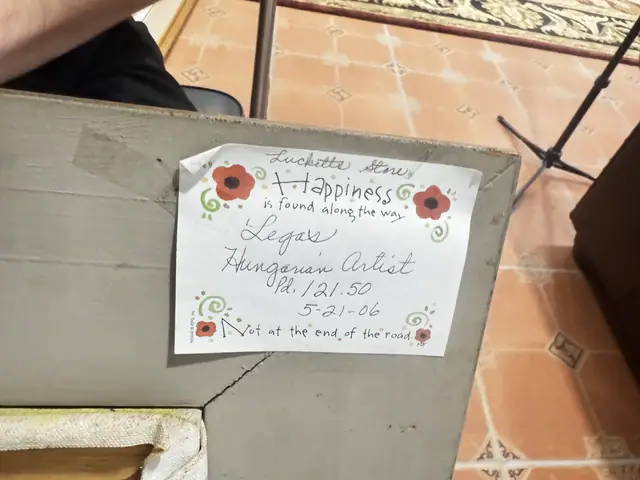 Lucketts Store
Happiness
is found along the way
Legas
Hungarian Artist
Pd. 121.50
5-21-06
Not at the end of the road.